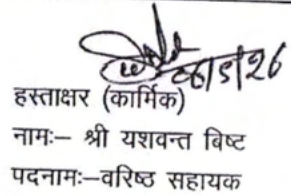 हस्ताक्षर (कार्मिक)
नामः– श्री यशवन्त बिष्ट
पदनामः–वरिष्ठ सहायक